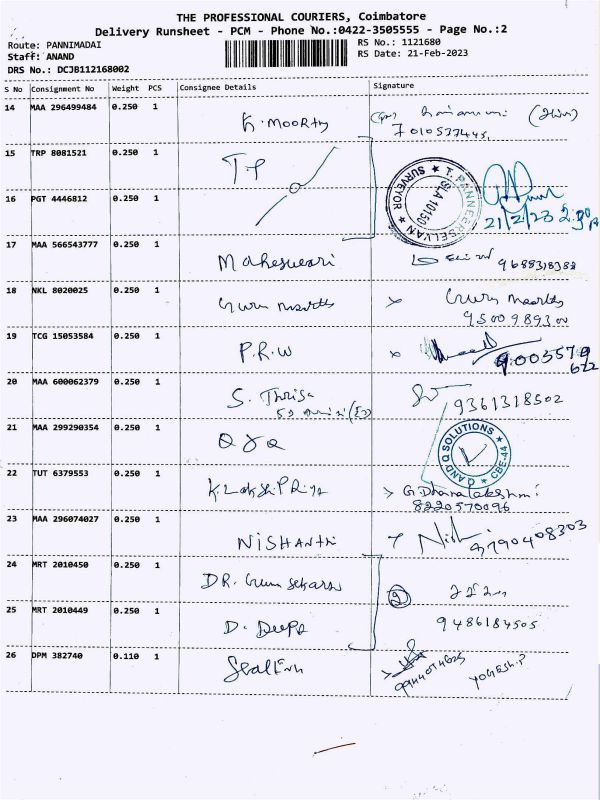 THE PROFESSIONAL COURIERS, Coimbatore
Delivery Runsheet - PCM - Phone No.:0422-3505555 - Page No.:2
Route: PANNIMADAI
RS No.: 1121680
Staff: ANAND
RS Date: 21-Feb-2023
DRS No.: DCJB112168002
S No Consignment No Weight PCS Consignee Details Signature
14 MAA 296499484 0.250 1 K. Moorthy
15 TRP 8081521 0.250 1 T.P
T. PANNEERSELVAN
SURVEYOR
SLA 10150
16 PGT 4446812 0.250 1
21/2/23 2.30
17 MAA 566543777 0.250 1 Maheswari 9688318388
18 NKL 8020025 0.250 1 Guru Moorthy Guru Moorthy
9500989300
19 TCG 15053584 0.250 1 P.R.W 9003579
622
20 MAA 600062379 0.250 1 S. Thrisa 9361318502
21 MAA 299290354 0.250 1 Q & Q
Q AND Q SOLUTIONS
CBE-44
22 TUT 6379553 0.250 1 K. LakshiPRiya G. Dhanalakshmi
8220570096
23 MAA 296074027 0.250 1 NiSHANTH Nish 9790408303
24 MRT 2010450 0.250 1 DR. Gunasekaran
25 MRT 2010449 0.250 1 D. Deepa 9486184505
26 DPM 382740 0.110 1 Yogesh.P